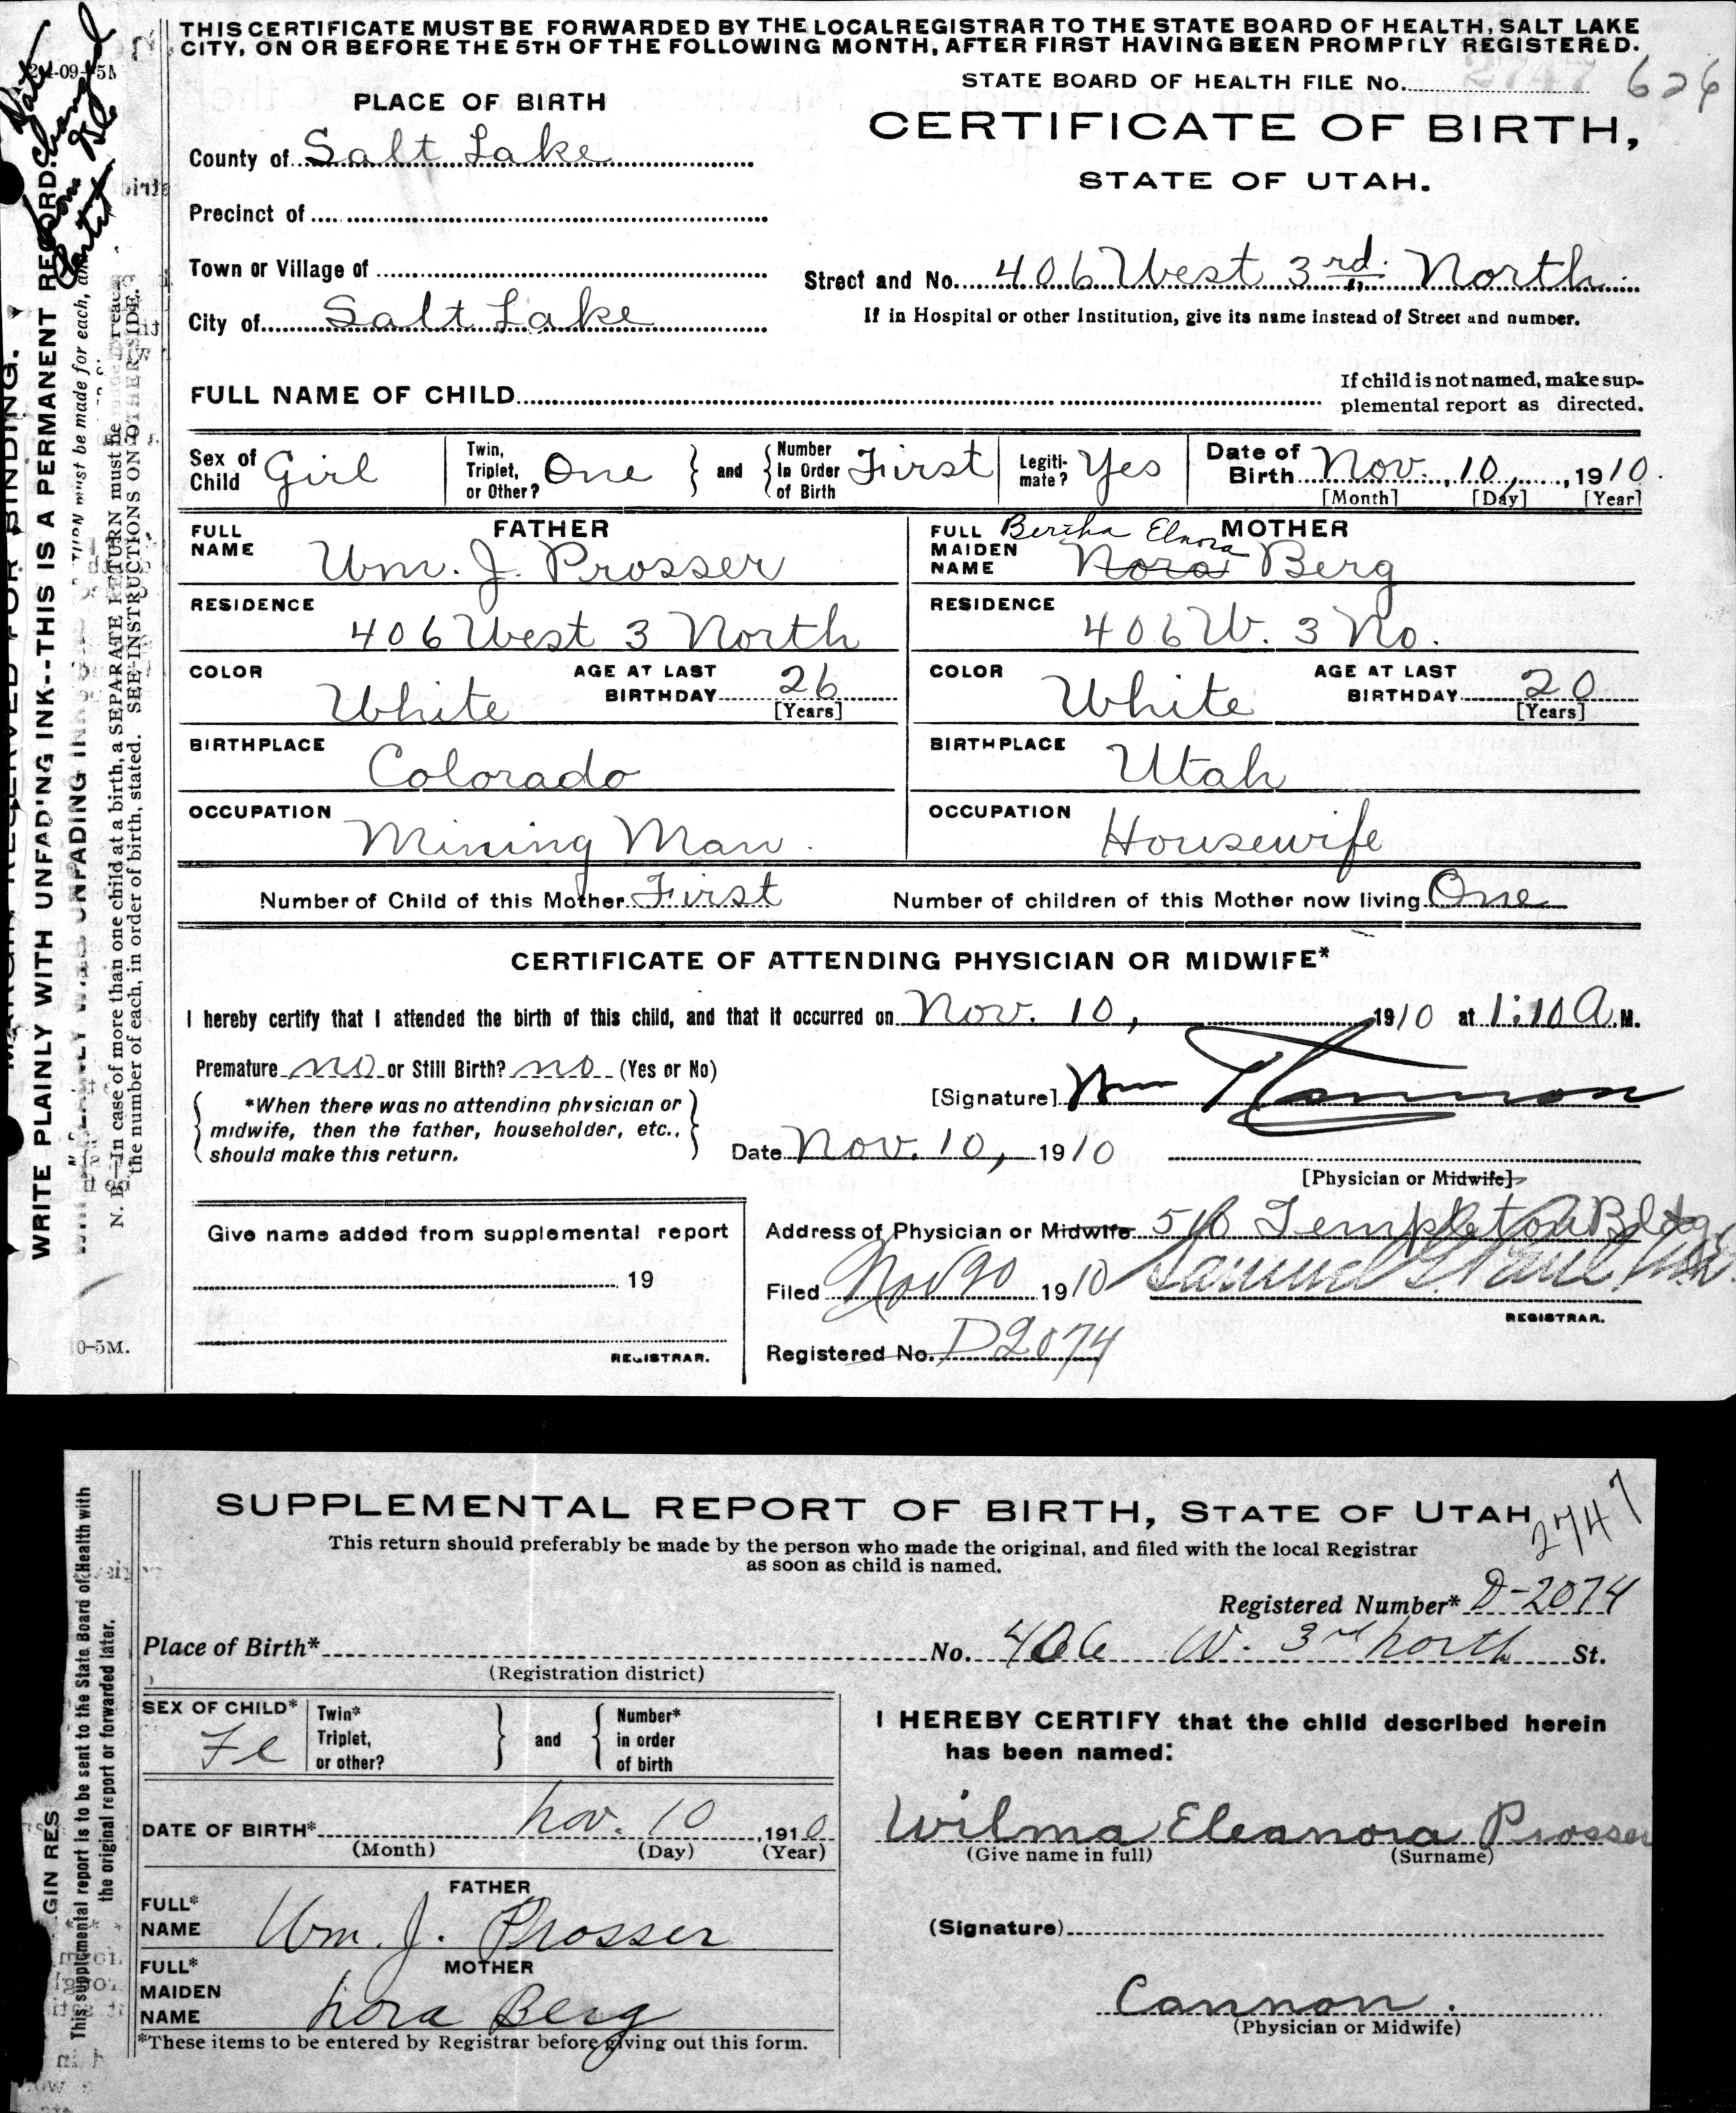 THIS CERTIFICATE MUST BE FORWARDED BY THE LOCAL REGISTRAR TO THE STATE BOARD OF HEALTH, SALT LAKE
CITY, ON OR BEFORE THE 5TH OF THE FOLLOWING MONTH, AFTER FIRST HAVING BEEN PROMPTLY REGISTERED.
STATE BOARD OF HEALTH FILE No. 2747 626
PLACE OF BIRTH
CERTIFICATE OF BIRTH,
STATE OF UTAH.
County of Salt Lake
Precinct of
Town or Village of
Street and No. 406 West 3rd. North
City of Salt Lake
If in Hospital or other Institution, give its name instead of Street and number.
FULL NAME OF CHILD
If child is not named, make sup-
plemental report as directed.
Sex of Child Girl
Twin, Triplet, or Other? One
and Number In Order of Birth First
Legiti-mate? Yes
Date of Birth Nov. 10, 1910.
[Month] [Day] [Year]
FATHER
FULL NAME Wm. J. Prosser
RESIDENCE
406 West 3 North
COLOR White
AGE AT LAST BIRTHDAY 26
[Years]
BIRTHPLACE
Colorado
OCCUPATION
Mining Man.
MOTHER
FULL MAIDEN NAME Bertha Elnora Nora Berg
RESIDENCE
406 W. 3 No.
COLOR White
AGE AT LAST BIRTHDAY 20
[Years]
BIRTHPLACE
Utah
OCCUPATION
Housewife
Number of Child of this Mother First
Number of children of this Mother now living One
CERTIFICATE OF ATTENDING PHYSICIAN OR MIDWIFE*
I hereby certify that I attended the birth of this child, and that it occurred on Nov. 10, 1910 at 1:10 A.M.
Premature no or Still Birth? no (Yes or No)
*When there was no attending physician or
midwife, then the father, householder, etc.,
should make this return.
[Signature] Wm T Cannon
Date Nov. 10, 1910
[Physician or Midwife]
Give name added from supplemental report
19
REGISTRAR.
Address of Physician or Midwife 510 Templeton Bldg
Filed Nov 90 1910 Samuel G. Paul
REGISTRAR.
Registered No. D2074
WRITE PLAINLY WITH UNFADING INK--THIS IS A PERMANENT RECORD.
N. B.—In case of more than one child at a birth, a SEPARATE RETURN must be made for each, and
the number of each, in order of birth, stated. SEE INSTRUCTIONS ON OTHER SIDE.
0-5M.
SUPPLEMENTAL REPORT OF BIRTH, STATE OF UTAH
2747
This return should preferably be made by the person who made the original, and filed with the local Registrar
as soon as child is named.
Registered Number* D-2074
Place of Birth* No. 406 W. 3rd North St.
(Registration district)
SEX OF CHILD* Fe
Twin* Triplet, or other?
and Number* in order of birth
DATE OF BIRTH* Nov. 10, 1910
(Month) (Day) (Year)
FATHER
FULL* NAME Wm. J. Prosser
MOTHER
FULL* MAIDEN NAME Nora Berg
*These items to be entered by Registrar before giving out this form.
I HEREBY CERTIFY that the child described herein
has been named:
Wilma Eleanora Prosser
(Give name in full) (Surname)
(Signature)
Cannon.
(Physician or Midwife)
This supplemental report is to be sent to the State Board of Health with
the original report or forwarded later.
GIN RES